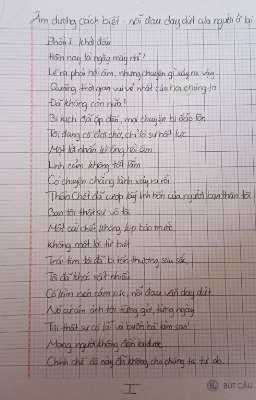 Âm dương cách biệt - nỗi đau day dứt của người ở lại
Phần 1 Khởi đầu
Hôm nay là ngày mấy nhỉ?
Lẽ ra phải nói ám, nhưng chuyện gì xảy ra vậy
Quãng thời gian vui vẻ nhất của hai chúng ta
Đã không còn nữa!
Bi kịch đã ập đến, mọi chuyện bị đảo lộn
Tôi đang cố đợi chờ, chỉ là sự bất lực
Một lời nhắn không hồi âm
Linh cảm không tốt lắm
Có chuyện chẳng lành xảy ra rồi
Thần Chết đã cướp lấy linh hồn của người bạn thân tôi
Bạn tôi thật sự vô tội
Một cái chết không kịp báo trước
Không một lời từ biệt
Trái tim tôi đã bị tổn thương sâu sắc
Tôi đã khóc rất nhiều
Cố kìm nén cảm xúc, nỗi đau vẫn day dứt
Nó cứ ám ảnh tôi từng giờ, từng ngày
Tôi thật sự có lỗi và buồn bã làm sao!
Mạng người không đền lại được
Chính chế độ này đã không cho chúng ta tự do.
I
BÚT CÂU